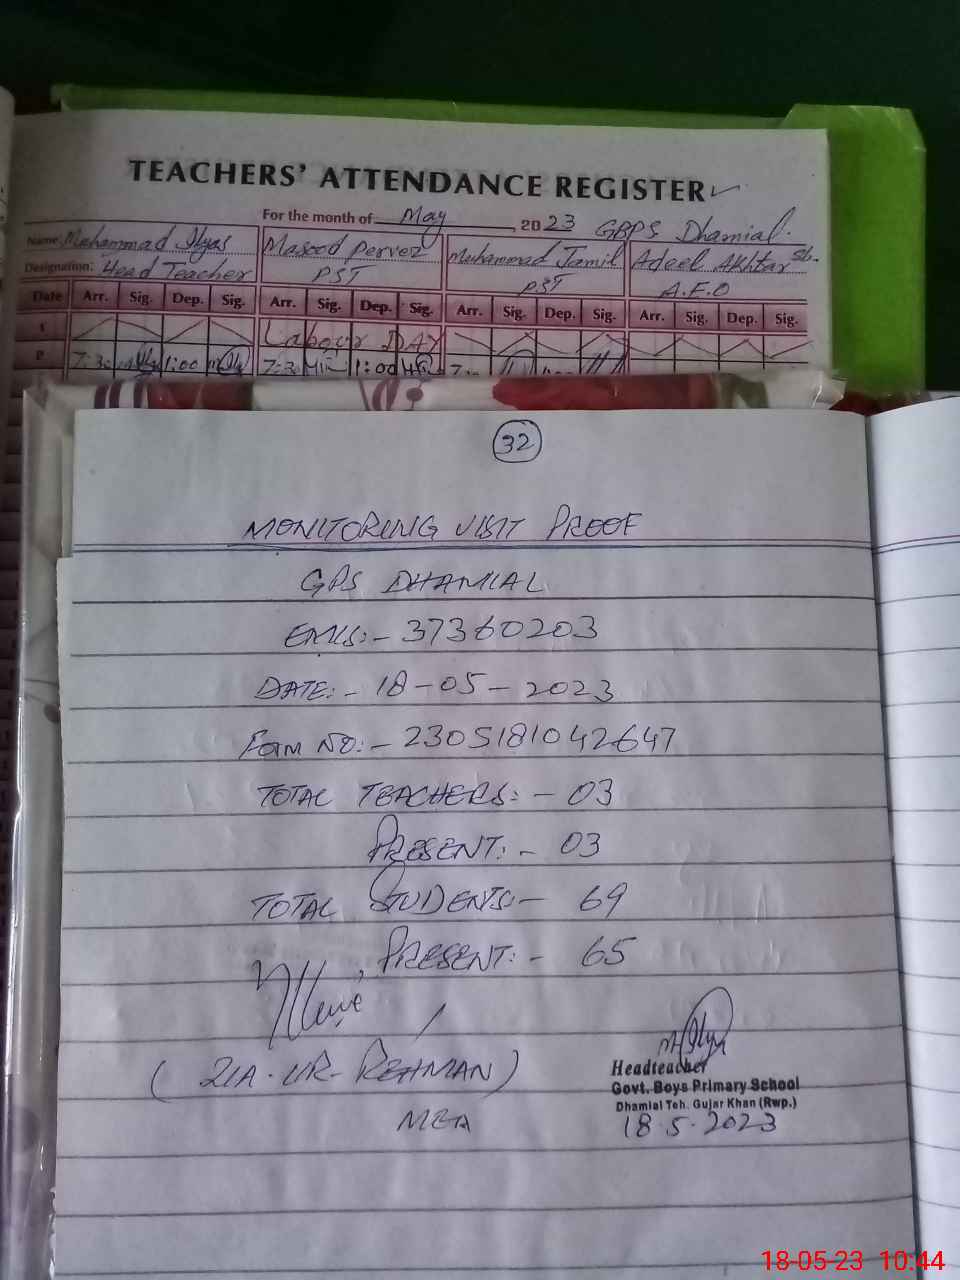 TEACHERS' ATTENDANCE REGISTER
For the month of May, 2023 GBPS Dhamial.
Name: Muhammad Ilyas Masood Pervez Muhammad Jamil Adeel Akhtar Sb.
Designation: Head Teacher PST PST A.E.O
Date Arr. Sig. Dep. Sig. Arr. Sig. Dep. Sig. Arr. Sig. Dep. Sig. Arr. Sig. Dep. Sig.
1 Labour DAY
2 7:30 1:00 7:30 1:00
32
MONITORING VISIT PROOF
GPS DHAMIAL
EMIS:- 37360203
DATE:- 18-05-2023
Form NO:- 2305181042647
TOTAL TEACHERS:- 03
PRESENT:- 03
TOTAL STUDENTS:- 69
PRESENT:- 65
(ZIA-UR-REHMAN)
MEA
Headteacher
Govt. Boys Primary School
Dhamial Teh. Gujar Khan (Rwp.)
18.5.2023
18-05-23 10:44